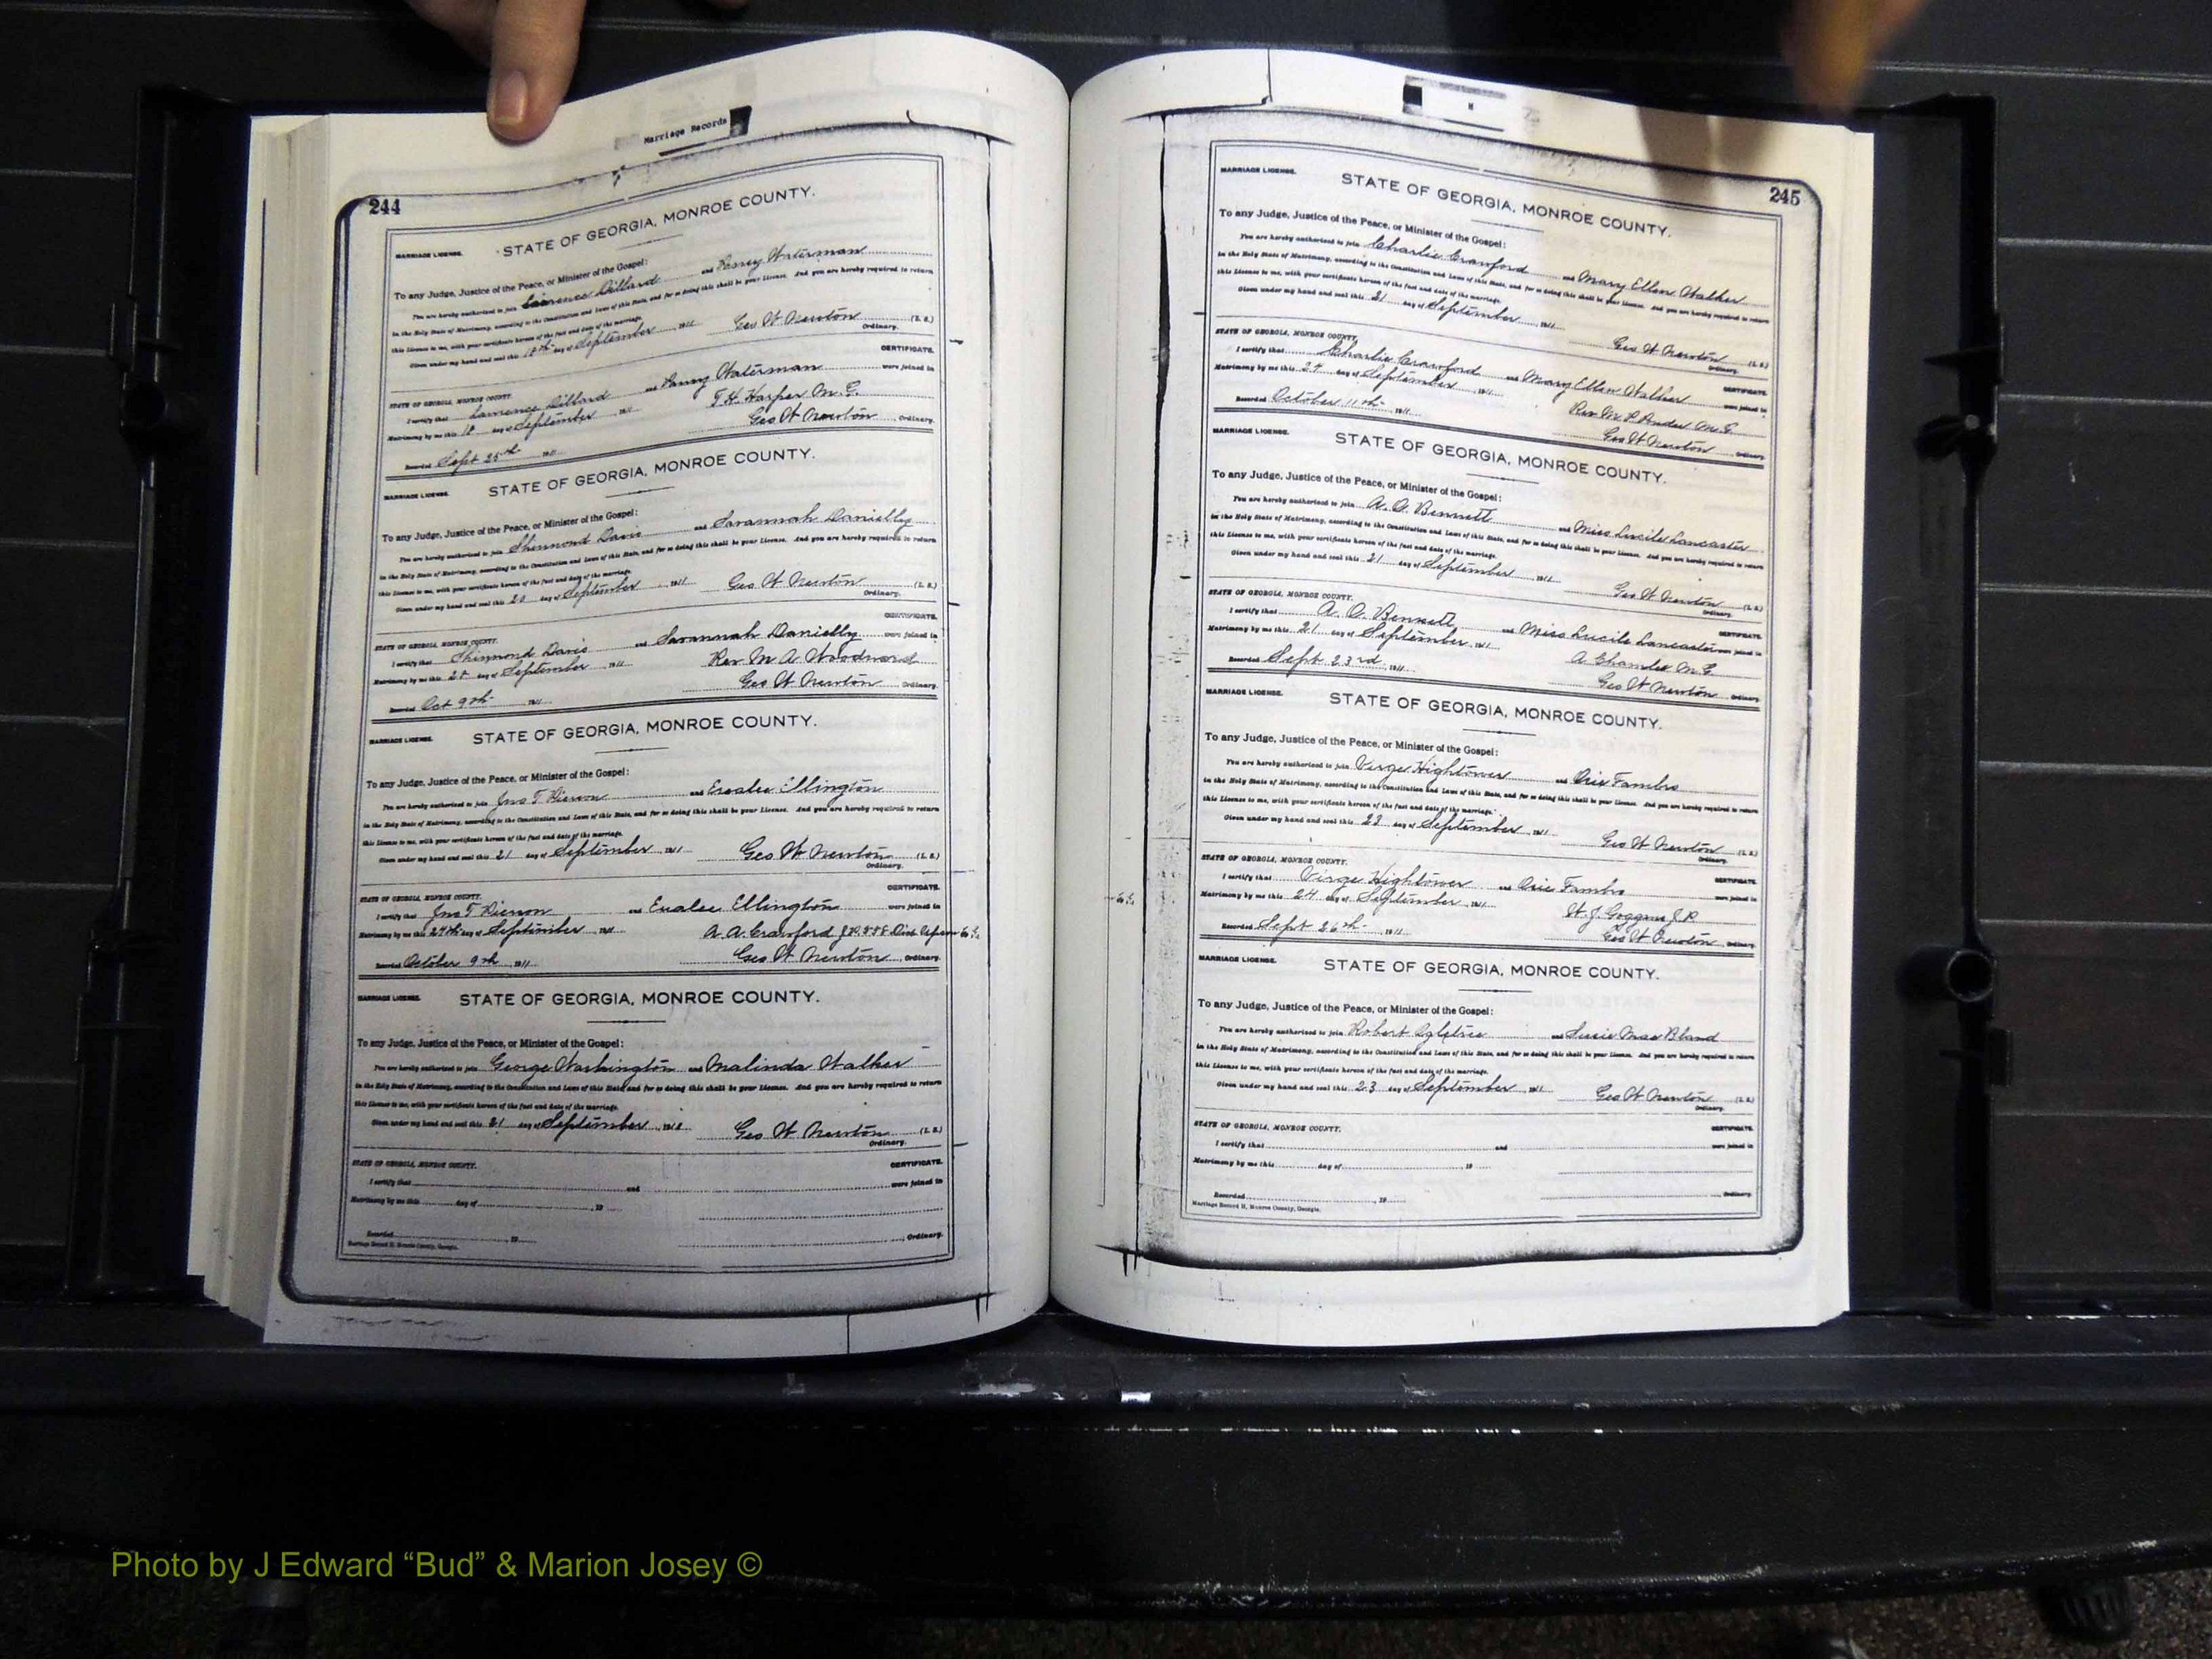 Marriage Records
244
MARRIAGE LICENSE.
STATE OF GEORGIA, MONROE COUNTY.
To any Judge, Justice of the Peace, or Minister of the Gospel:
You are hereby authorized to join Lawrence Dillard and Waterman
in the Holy State of Matrimony, according to the Constitution and Laws of this State, and for so doing this shall be your License. And you are hereby required to return
this License to me, with your certificate hereon of the fact and date of the marriage.
Given under my hand and seal this 18th day of September 1911 Geo W Newton (L. S.)
Ordinary.
CERTIFICATE.
STATE OF GEORGIA, MONROE COUNTY.
I certify that Lawrence Dillard and Waterman were joined in
Matrimony by me this 18 day of September 1911 T. H. Harper M. G.
Recorded Sept 25th 1911 Geo W Newton Ordinary.
MARRIAGE LICENSE.
STATE OF GEORGIA, MONROE COUNTY.
To any Judge, Justice of the Peace, or Minister of the Gospel:
You are hereby authorized to join Davis and Savannah Danielly
in the Holy State of Matrimony, according to the Constitution and Laws of this State, and for so doing this shall be your License. And you are hereby required to return
this License to me, with your certificate hereon of the fact and date of the marriage.
Given under my hand and seal this 20 day of September 1911 Geo W Newton (L. S.)
Ordinary.
CERTIFICATE.
STATE OF GEORGIA, MONROE COUNTY.
I certify that Davis and Savannah Danielly were joined in
Matrimony by me this day of September 1911 Rev M A Woodward
Recorded Oct 9th 1911 Geo W Newton Ordinary.
MARRIAGE LICENSE.
STATE OF GEORGIA, MONROE COUNTY.
To any Judge, Justice of the Peace, or Minister of the Gospel:
You are hereby authorized to join Jno T and Ellington
in the Holy State of Matrimony, according to the Constitution and Laws of this State, and for so doing this shall be your License. And you are hereby required to return
this License to me, with your certificate hereon of the fact and date of the marriage.
Given under my hand and seal this 21 day of September 1911 Geo W Newton (L. S.)
Ordinary.
CERTIFICATE.
STATE OF GEORGIA, MONROE COUNTY.
I certify that Jno T and Eualee Ellington were joined in
Matrimony by me this 24th day of September 1911 A. A. Crawford J.P. Dist Upson Co Ga
Recorded October 9th 1911 Geo W Newton Ordinary.
MARRIAGE LICENSE.
STATE OF GEORGIA, MONROE COUNTY.
To any Judge, Justice of the Peace, or Minister of the Gospel:
You are hereby authorized to join George Washington and Malinda Walker
in the Holy State of Matrimony, according to the Constitution and Laws of this State and for so doing this shall be your License. And you are hereby required to return
this License to me, with your certificate hereon of the fact and date of the marriage.
Given under my hand and seal this 21 day of September 1911 Geo W Newton (L. S.)
Ordinary.
CERTIFICATE.
STATE OF GEORGIA, MONROE COUNTY.
I certify that and were joined in
Matrimony by me this day of 19
Recorded 19 Ordinary.
Marriage Record H, Monroe County, Georgia.
245
MARRIAGE LICENSE.
STATE OF GEORGIA, MONROE COUNTY.
To any Judge, Justice of the Peace, or Minister of the Gospel:
You are hereby authorized to join Charlie Crawford and Mary Ellen Walker
in the Holy State of Matrimony, according to the Constitution and Laws of this State, and for so doing this shall be your License. And you are hereby required to return
this License to me, with your certificate hereon of the fact and date of the marriage.
Given under my hand and seal this 21 day of September 1911 Geo W Newton (L. S.)
Ordinary.
STATE OF GEORGIA, MONROE COUNTY.
CERTIFICATE.
I certify that Charlie Crawford and Mary Ellen Walker were joined in
Matrimony by me this 24 day of September 1911 Rev M. P. M. G.
Recorded October 11th 1911 Geo W Newton Ordinary.
MARRIAGE LICENSE.
STATE OF GEORGIA, MONROE COUNTY.
To any Judge, Justice of the Peace, or Minister of the Gospel:
You are hereby authorized to join A. O. Bennett and Miss Lucile Lancaster
in the Holy State of Matrimony, according to the Constitution and Laws of this State, and for so doing this shall be your License. And you are hereby required to return
this License to me, with your certificate hereon of the fact and date of the marriage.
Given under my hand and seal this 21 day of September 1911 Geo W Newton (L. S.)
Ordinary.
STATE OF GEORGIA, MONROE COUNTY.
CERTIFICATE.
I certify that A. O. Bennett and Miss Lucile Lancaster were joined in
Matrimony by me this 21 day of September 1911 A M. G.
Recorded Sept 23rd 1911 Geo W Newton Ordinary.
MARRIAGE LICENSE.
STATE OF GEORGIA, MONROE COUNTY.
To any Judge, Justice of the Peace, or Minister of the Gospel:
You are hereby authorized to join Virge Hightower and Fambro
in the Holy State of Matrimony, according to the Constitution and Laws of this State, and for so doing this shall be your License. And you are hereby required to return
this License to me, with your certificate hereon of the fact and date of the marriage.
Given under my hand and seal this 23 day of September 1911 Geo W Newton (L. S.)
Ordinary.
STATE OF GEORGIA, MONROE COUNTY.
CERTIFICATE.
I certify that Virge Hightower and Fambro were joined in
Matrimony by me this 24 day of September 1911 W. J. Goggans J. P.
Recorded Sept 26th 1911 Geo W Newton Ordinary.
MARRIAGE LICENSE.
STATE OF GEORGIA, MONROE COUNTY.
To any Judge, Justice of the Peace, or Minister of the Gospel:
You are hereby authorized to join Robert Ogletree and Susie Mae Bland
in the Holy State of Matrimony, according to the Constitution and Laws of this State, and for so doing this shall be your License. And you are hereby required to return
this License to me, with your certificate hereon of the fact and date of the marriage.
Given under my hand and seal this 23 day of September 1911 Geo W Newton (L. S.)
Ordinary.
STATE OF GEORGIA, MONROE COUNTY.
CERTIFICATE.
I certify that and were joined in
Matrimony by me this day of 19
Recorded 19 Ordinary.
Marriage Record H, Monroe County, Georgia.
Photo by J Edward “Bud” & Marion Josey ©